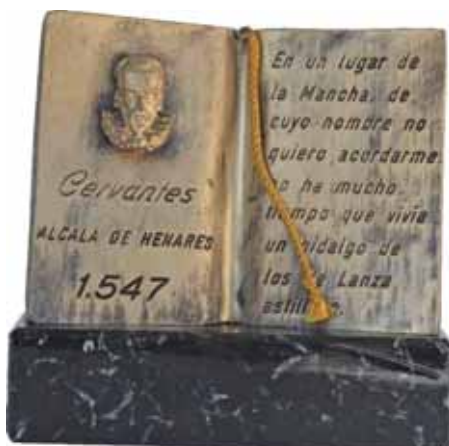 Cervantes
ALCALA DE HENARES
1.547
En un lugar de
la Mancha, de
cuyo nombre no
quiero acordarme
no ha mucho
tiempo que vivia
un hidalgo de
los de Lanza